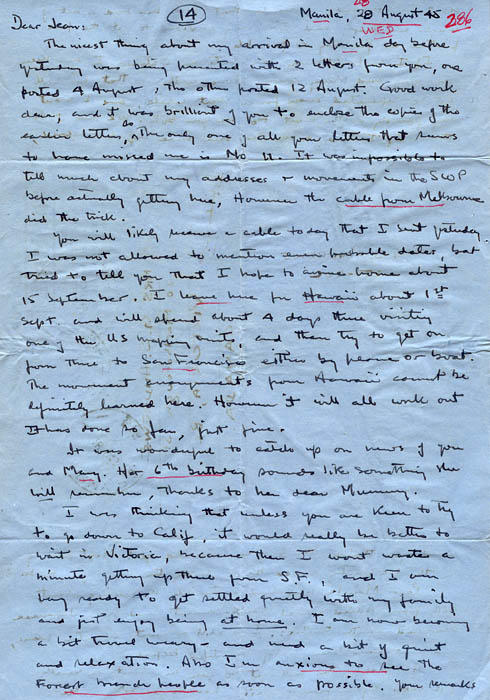 (14)
28
Manila, 28 August 45
WED
286
Dear Jean:
The nicest thing about my arrival in Manila day before
yesterday was being presented with 2 letters from you, one
posted 4 August, the other posted 12 August. Good work
dear, and it was brilliant of you to enclose the copies of the
earlier letter, as the only one of all your letters that seems
to have missed me is No 11. It was impossible to
tell much about my addresses + movements in the SWP
before actually getting here, However the cable from Melbourne
did the trick.
You will likely receive a cable today that I sent yesterday.
I was not allowed to mention even probable dates, but
tried to tell you that I hope to arrive home about
15 September. I leave here for Hawaii about 1st
Sept. and will spend about 4 days there visiting
one of the US mapping units, and then try to get on
from there to San Francisco either by plane or boat.
The movement arrangements from Hawaii cannot be
definitely learned here. However it will all work out
It has done so far, just fine.
It was wonderful to catch up on news of you
and Mary. Her 6th birthday sounds like something she
will remember, thanks to her dear Mummy.
I was thinking that unless you are keen to try
to go down to Calif, it would really be better to
wait in Victoria, because then I wont waste a
minute getting up there from S.F., and I am
very ready to get settled quietly with my family
and just enjoy being at home. I am now becoming
a bit travel weary - and need a bit of quiet
and relaxation. Also I'm anxious to see the
Forest branch people as soon as possible. Your remarks